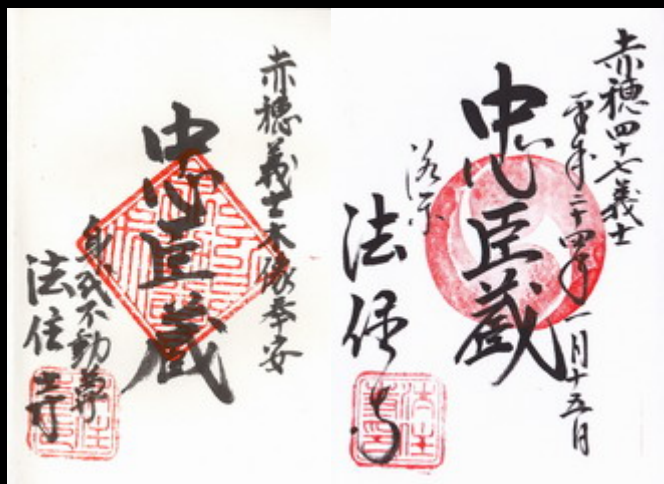 赤穂義士木像奉安
忠臣蔵
身代不動尊
法住寺
赤穂四十七義士
平成二十四年一月十五日
忠臣蔵
洛東
法住寺